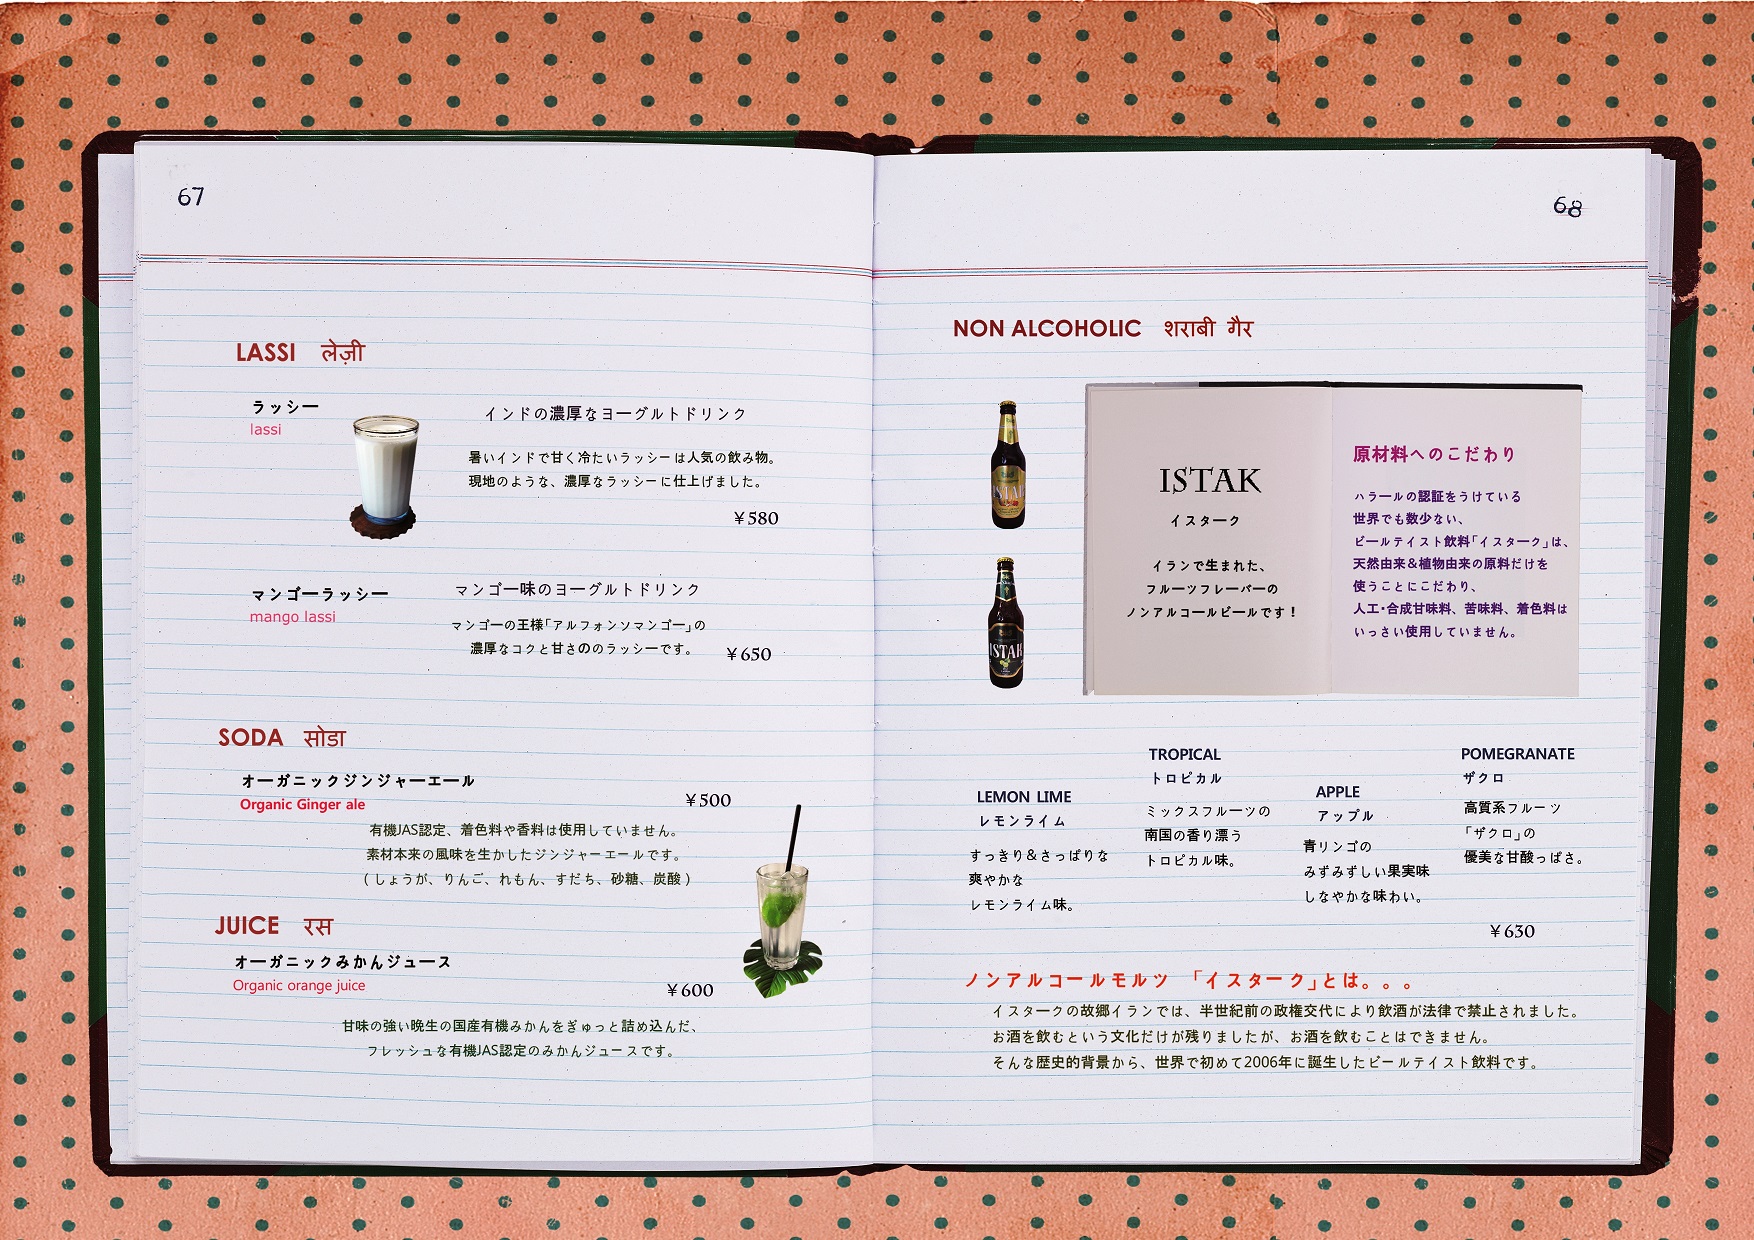 67
LASSI लेज़ी
ラッシー
lassi
インドの濃厚なヨーグルトドリンク
暑いインドで甘く冷たいラッシーは人気の飲み物。
現地のような、濃厚なラッシーに仕上げました。
￥580
マンゴーラッシー
mango lassi
マンゴー味のヨーグルトドリンク
マンゴーの王様「アルフォンソマンゴー」の
濃厚なコクと甘さののラッシーです。
￥650
SODA सोडा
オーガニックジンジャーエール
Organic Ginger ale
￥500
有機JAS認定、着色料や香料は使用していません。
素材本来の風味を生かしたジンジャーエールです。
(しょうが、りんご、れもん、すだち、砂糖、炭酸)
JUICE रस
オーガニックみかんジュース
Organic orange juice
￥600
甘味の強い晩生の国産有機みかんをぎゅっと詰め込んだ、
フレッシュな有機JAS認定のみかんジュースです。
68
NON ALCOHOLIC शराबी गैर
ISTAK
ISTAK
ISTAK
イスターク
イランで生まれた、
フルーツフレーバーの
ノンアルコールビールです！
原材料へのこだわり
ハラールの認証をうけている
世界でも数少ない、
ビールテイスト飲料「イスターク」は、
天然由来&植物由来の原料だけを
使うことにこだわり、
人工・合成甘味料、苦味料、着色料は
いっさい使用していません。
LEMON LIME
レモンライム
すっきり&さっぱりな
爽やかな
レモンライム味。
TROPICAL
トロピカル
ミックスフルーツの
南国の香り漂う
トロピカル味。
APPLE
アップル
青リンゴの
みずみずしい果実味
しなやかな味わい。
POMEGRANATE
ザクロ
高質系フルーツ
「ザクロ」の
優美な甘酸っぱさ。
￥630
ノンアルコールモルツ 「イスターク」とは。。。
イスタークの故郷イランでは、半世紀前の政権交代により飲酒が法律で禁止されました。
お酒を飲むという文化だけが残りましたが、お酒を飲むことはできません。
そんな歴史的背景から、世界で初めて2006年に誕生したビールテイスト飲料です。